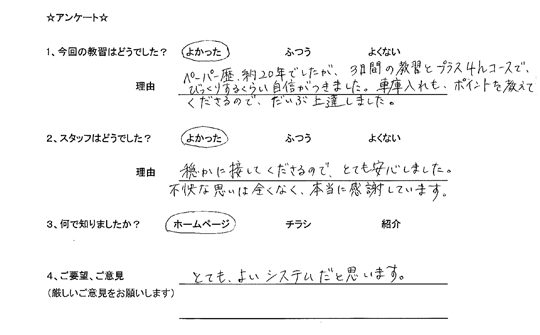 ☆アンケート☆
1、今回の教習はどうでした? よかった ふつう よくない
理由 ペーパー歴、約20年でしたが、3日間の教習とプラス4hコースで、
びっくりするくらい自信がつきました。車庫入れも、ポイントを教えて
くださるので、だいぶ上達しました。
2、スタッフはどうでした? よかった ふつう よくない
理由 穏かに接してくださるので、とても安心しました。
不快な思いは全くなく、本当に感謝しています。
3、何で知りましたか? ホームページ チラシ 紹介
4、ご要望、ご意見 とても、よいシステムだと思います。
(厳しいご意見をお願いします)